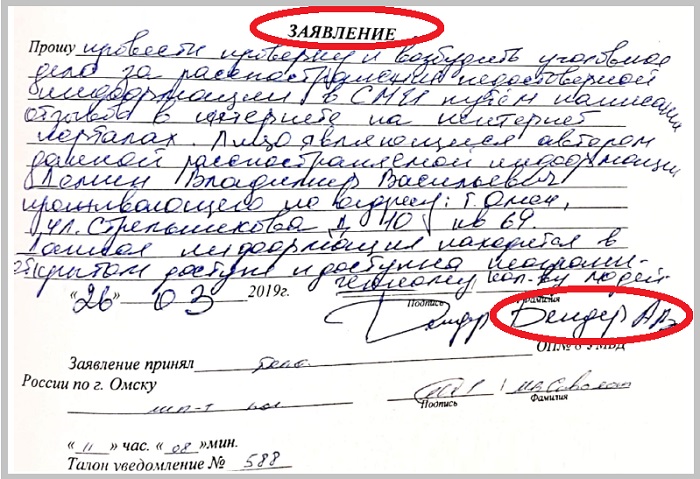 ЗАЯВЛЕНИЕ
Прошу провести проверку и возбудить уголовное
дело за распространение недостоверной
информации в СМИ путём написания
отзыва в интернете на интернет
порталах. Лицо являющиеся автором
данной распостраняемой информации
Демин Владимир Васильевич
проживающего по адресу: г. Омск,
ул. Стрельникова д 10 кв 69.
Данная информация находится в
открытом доступе и доступна неограни-
ченному кол-ву людей
"26" 03 2019г.
Подпись Фамилия
Бендер Бендер АВ
ОП№ 8 УМВД
Заявление принял
России по г. Омску
Подпись Фамилия
"11" час. "08" мин.
Талон уведомление № 588